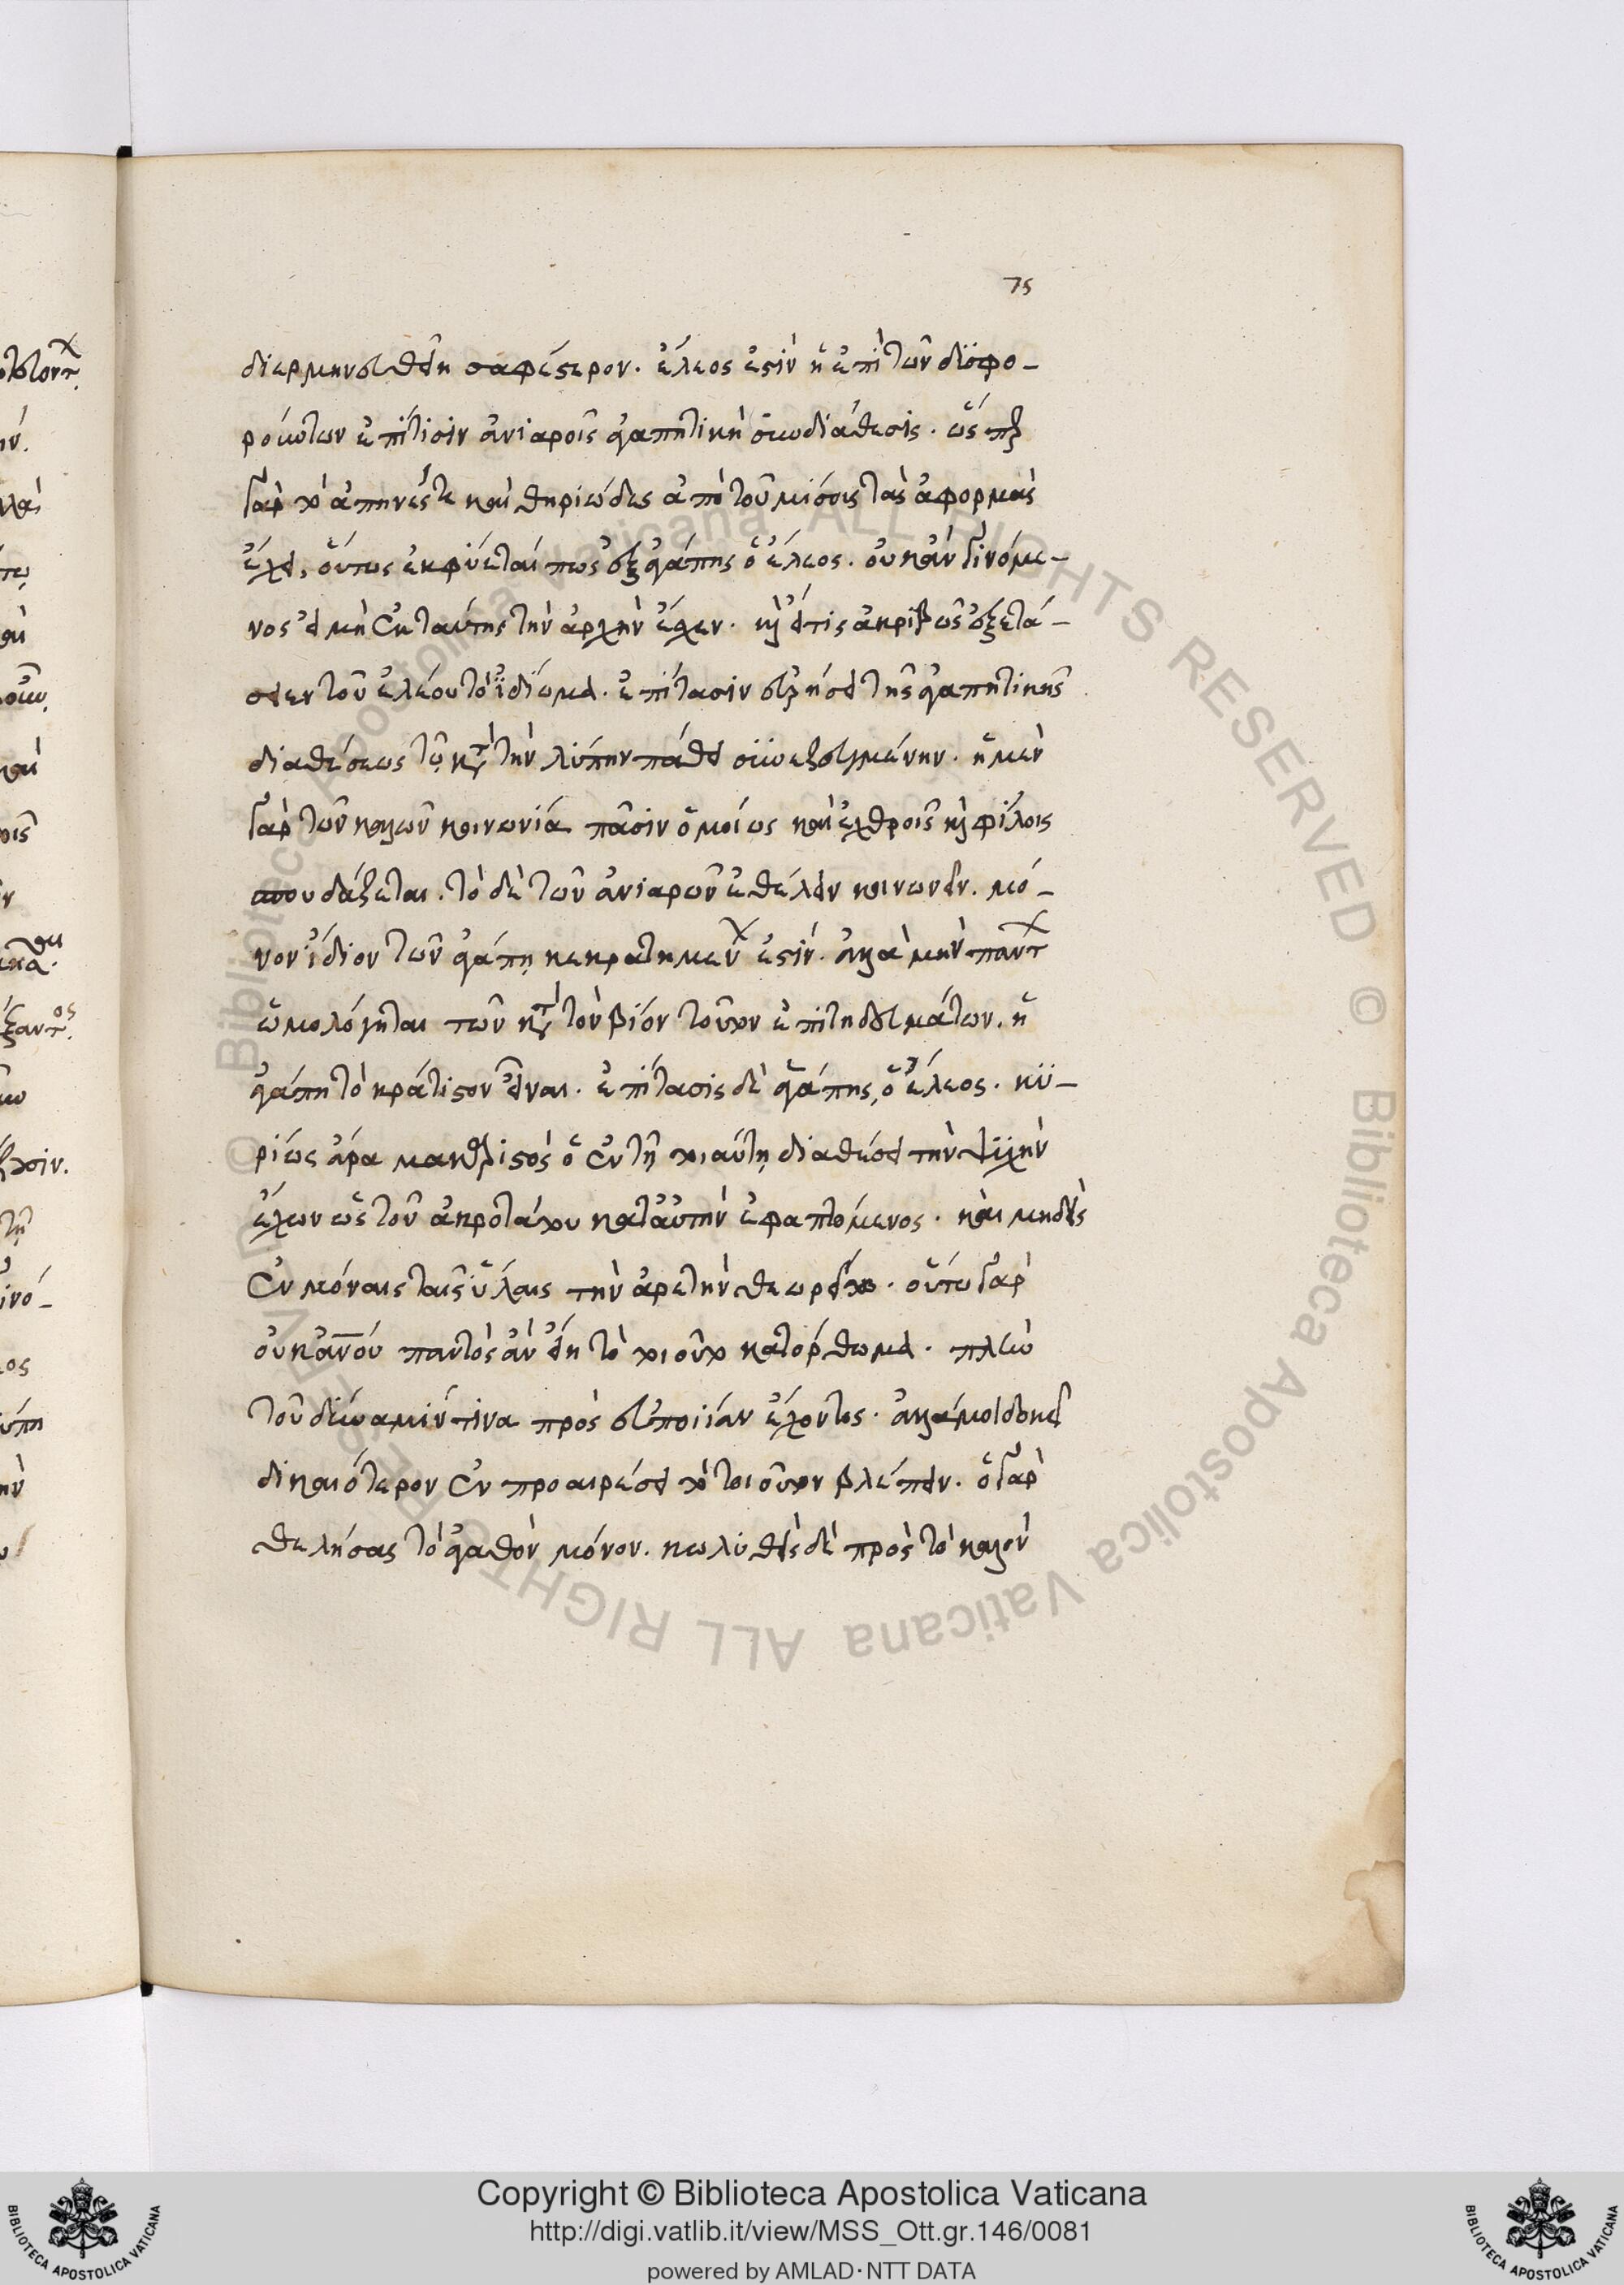 75
διερμηνευθείη σαφέστερον. ἔλεος ἐστὶν ἡ ἐπὶ τῶν δυσφο-
ρούντων ἐπί τισιν ἀνιαροῖς ἀγαπητικὴ συνδιάθεσις. ὥσπερ
γὰρ τὸ ἀπηνές τε καὶ θηριῶδες ἀπὸ τοῦ μίσους τὰς ἀφορμὰς
ἔχει, οὕτως ἐκφύεταί πως ἐξ ἀγάπης ὁ ἔλεος. οὐκ ἂν γινόμε-
νος εἰ μὴ ἐκ ταύτης τὴν ἀρχὴν ἔσχεν. καὶ εἴ τις ἀκριβῶς ἐξετά-
σειεν τοῦ ἐλέου τὸ ἰδίωμα. ἐπίτασιν εὑρήσει τῆς ἀγαπητικῆς
διαθέσεως τῷ κατὰ τὴν λύπην πάθει συνεζευγμένην. ἡ μὲν
γὰρ τῶν καλῶν κοινωνία πᾶσιν ὁμοίως καὶ ἐχθροῖς καὶ φίλοις
σπουδάζεται. τὸ δὲ τῶν ἀνιαρῶν ἐθέλειν κοινωνεῖν. μό-
νον ἴδιον τῶν ἀγάπῃ κεκρατημένων ἐστίν. ἀλλὰ μὴν πάντων
ὡμολόγηται τῶν κατὰ τὸν βίον τοῦτον ἐπιτηδευμάτων. ἡ
ἀγάπη τὸ κράτιστον εἶναι. ἐπίτασις δὲ ἀγάπης, ὁ ἔλεος. κυ-
ρίως ἄρα μακαριστὸς ὁ ἐν τῇ τοιαύτῃ διαθέσει τὴν ψυχὴν
ἔχων ὡς τοῦ ἀκροτάτου κατ' αὐτὴν ἐφαπτόμενος. καὶ μηδεὶς
ἐν μόναις ταῖς ὕλαις τὴν ἀρετὴν θεωρείτω. οὕτω γὰρ
οὐκ ἂν οὐ παντὸς ἂν εἴη τὸ τοιοῦτο κατόρθωμα. πλὴν
τοῦ δύναμίν τινα πρὸς εὐποιίαν ἔχοντος. ἀλλά μοι δοκεῖ
δικαιότερον ἐν προαιρέσει τὸ τοιοῦτον βλέπειν. ὁ γὰρ
θελήσας τὸ ἀγαθὸν μόνον. κωλυθεὶς δὲ πρὸς τὸ καλὸν
Copyright © Biblioteca Apostolica Vaticana
http://digi.vatlib.it/view/MSS_Ott.gr.146/0081
powered by AMLAD·NTT DATA